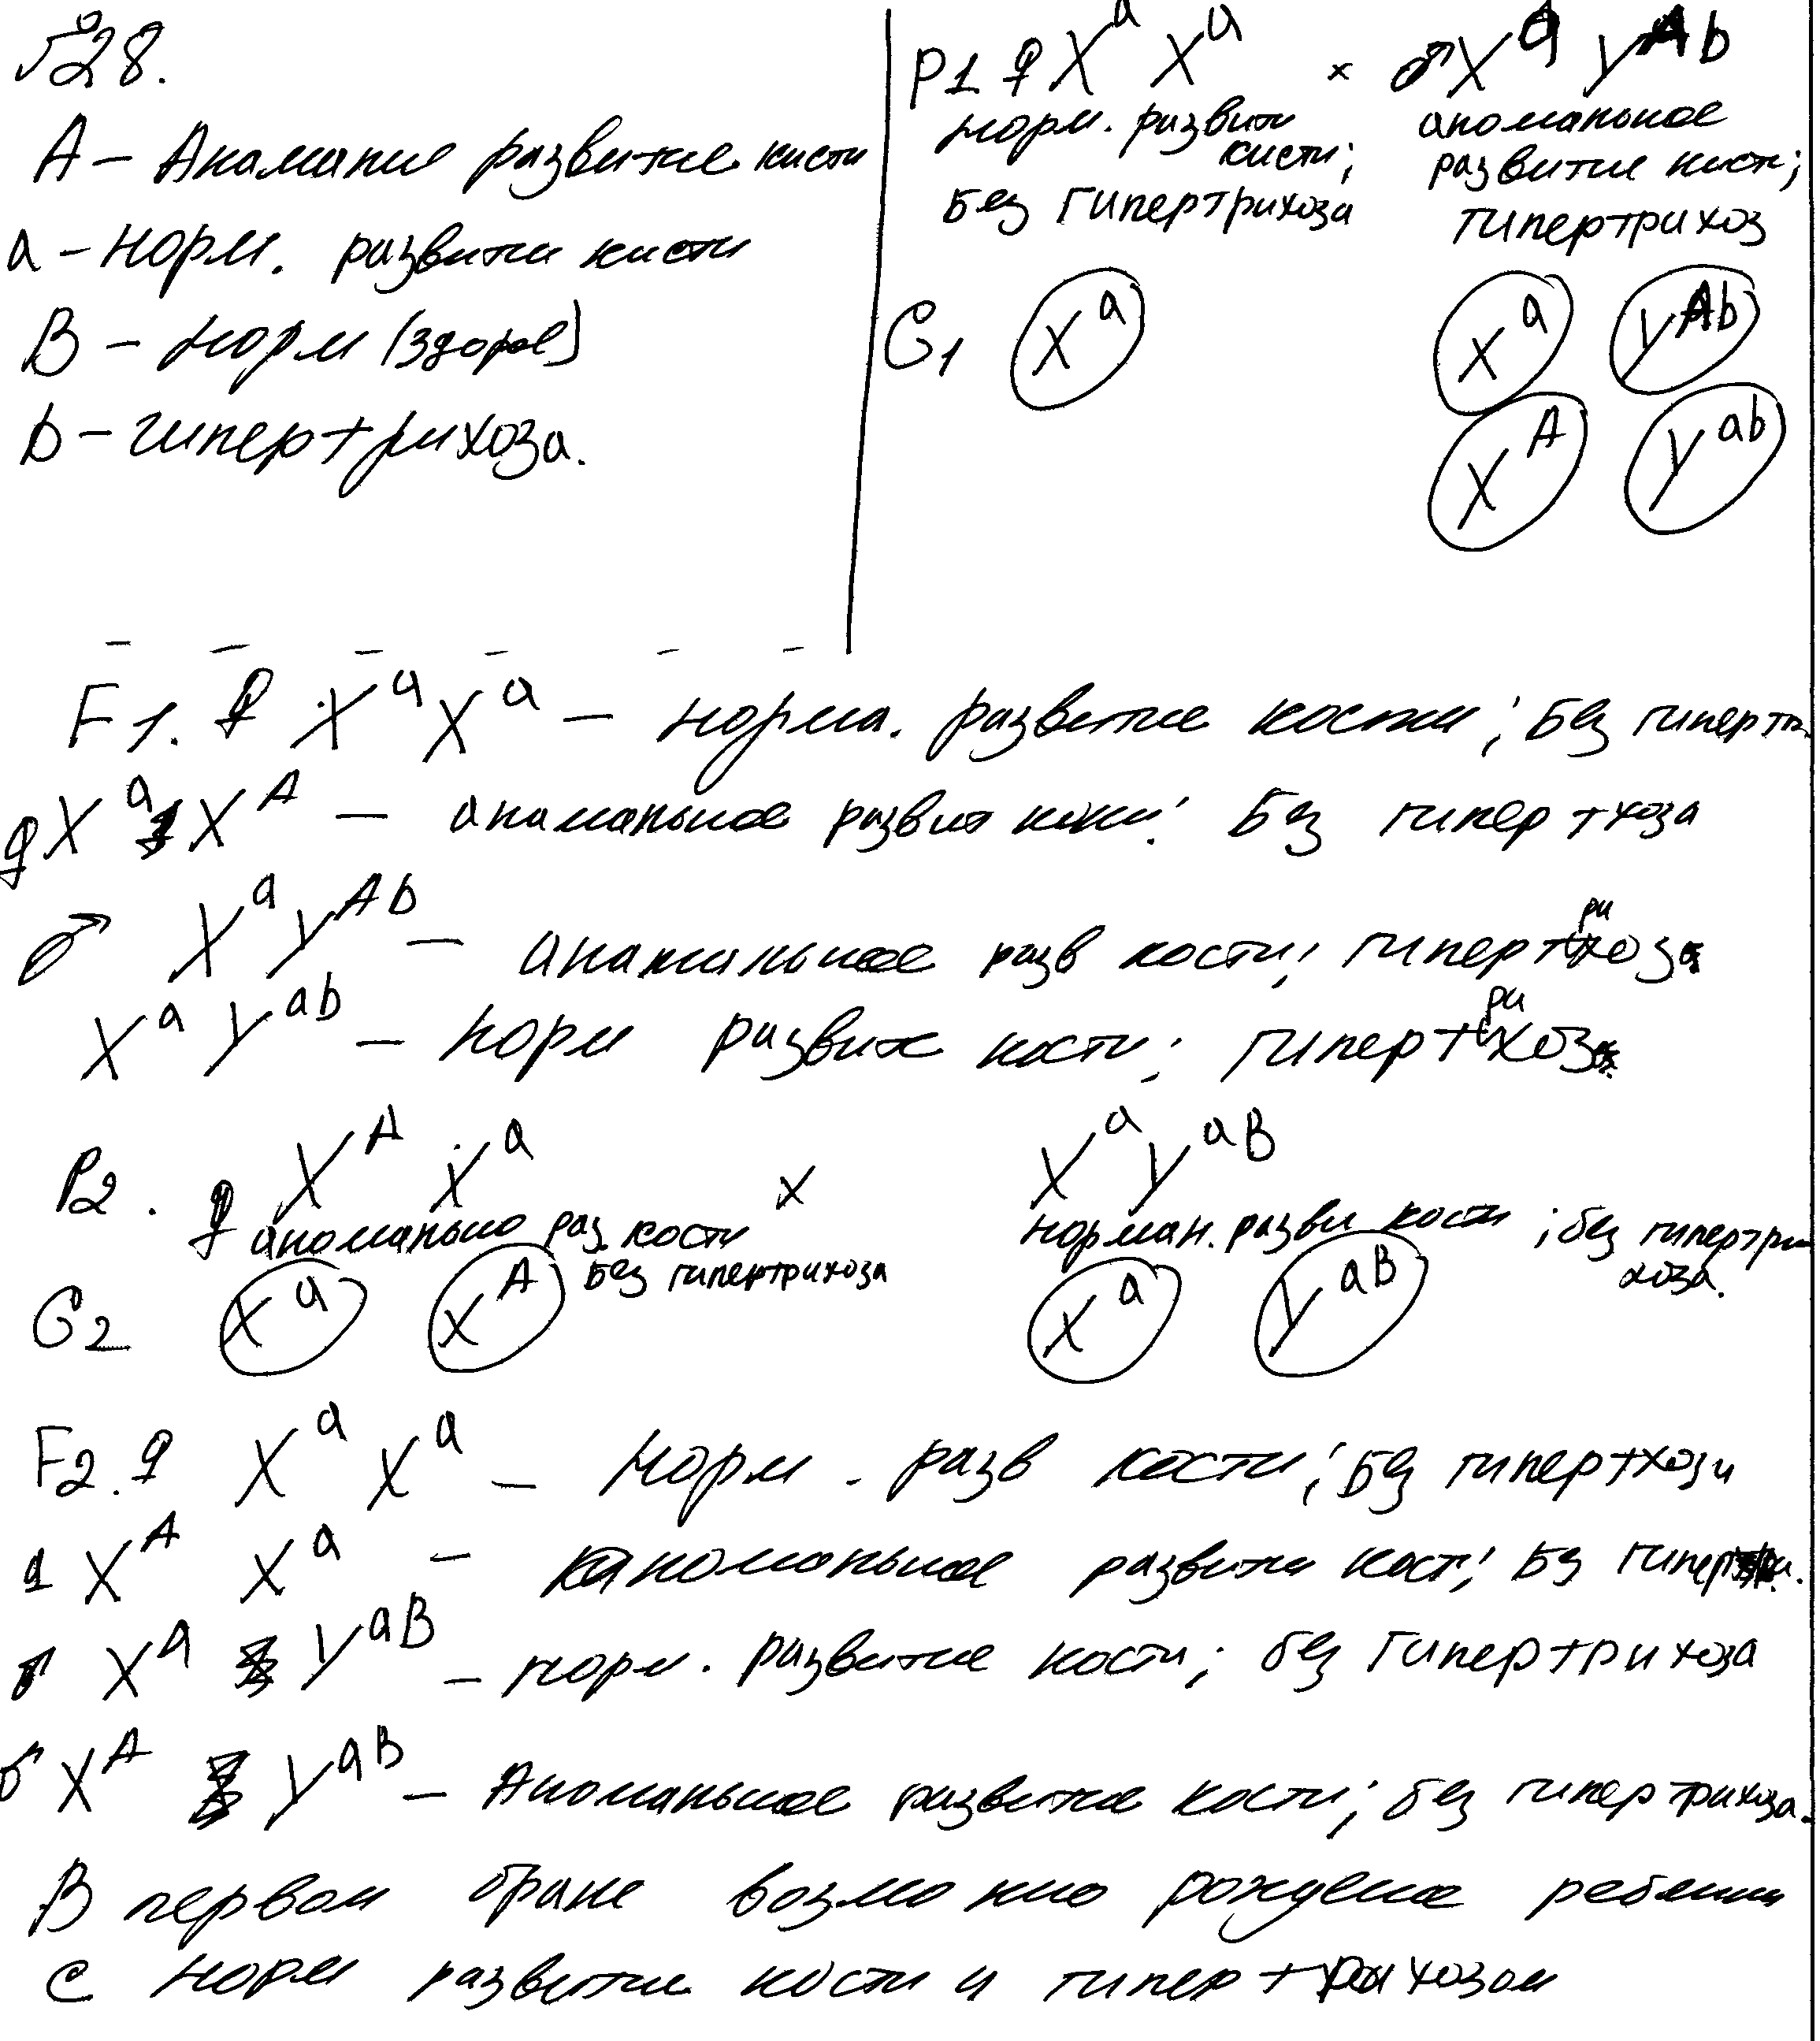 №28.
А – Анамалие развитие кисти
а – норм. развити кисти
В – норм (здоров)
b – гипертрихоза.
P1 ♀ X^a X^a × ♂ X^a Y^Ab
норм. развити кисти; без гипертрихоза
аномальное развитие кисти; гипертрихоз
G1 X^a X^a Y^Ab
X^A Y^ab
F1. ♀ X^a X^a – норма. развитие кости; Без гиперт
♀ X^a X^A – анамальное развит кости; Без гипертхоза
♂ X^a Y^Ab – анамальное разв кости; гипертрихоза
X^a Y^ab – норм развитие кости; гипертрихоза
P2. ♀ X^A X^a × X^a Y^aB
аномально раз. кости без гипертрихоза
норман. разви кости; без гипертрихоза.
G2 X^a X^A X^a Y^aB
F2. ♀ X^a X^a – Норм. разв кости; Без гипертхози
♀ X^A X^a – аномальное развити кост; Без гиперт.
♂ X^a Y^aB – норм. развитие кости; без Гипертрихоза
♂ X^A Y^aB – Аномальное развитие кости; без гипертрихоза.
В первом браке возможно рождение ребенка
с норм развитие кости и гипертрихозом